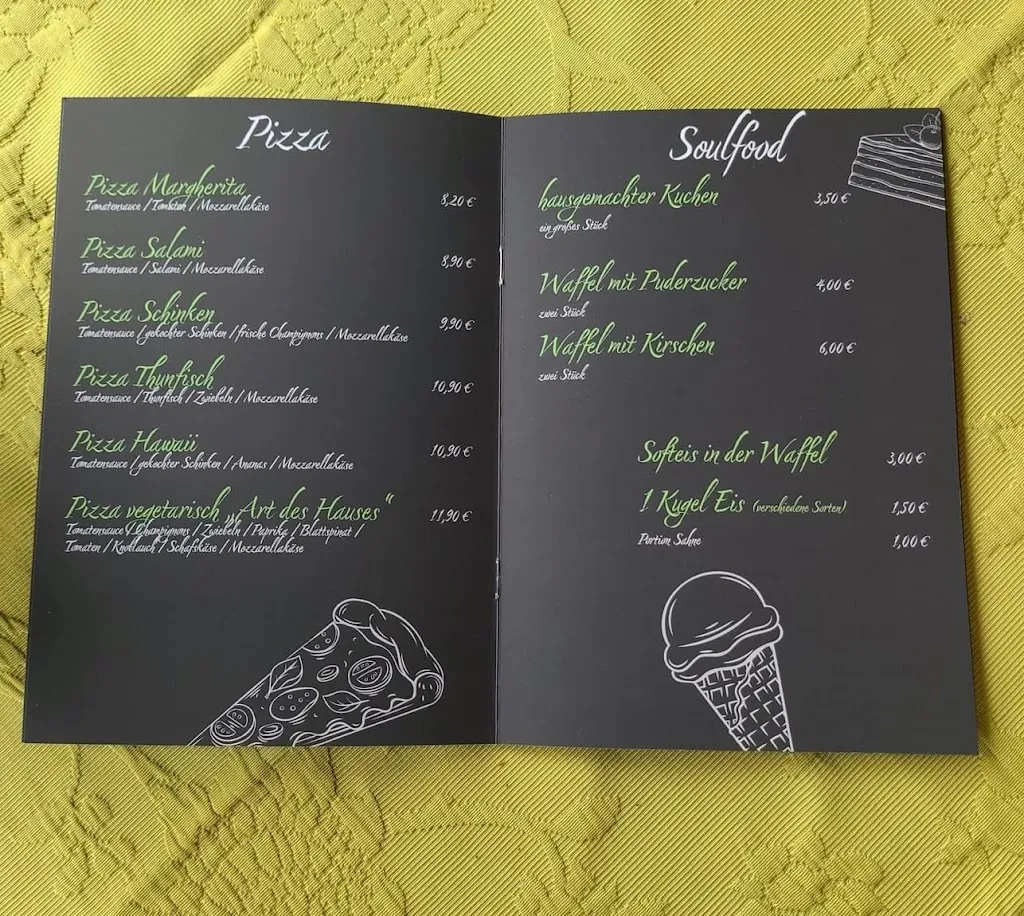 Pizza
Pizza Margherita
Tomatensauce / Tomaten / Mozzarellakäse 8,20 €
Pizza Salami
Tomatensauce / Salami / Mozzarellakäse 8,90 €
Pizza Schinken
Tomatensauce / gekochter Schinken / frische Champignons / Mozzarellakäse 9,90 €
Pizza Thunfisch
Tomatensauce / Thunfisch / Zwiebeln / Mozzarellakäse 10,90 €
Pizza Hawaii
Tomatensauce / gekochter Schinken / Ananas / Mozzarellakäse 10,90 €
Pizza vegetarisch „Art des Hauses“ 11,90 €
Tomatensauce / Champignons / Zwiebeln / Paprika / Blattspinat /
Tomaten / Knoblauch / Schafskäse / Mozzarellakäse
Soulfood
hausgemachter Kuchen 3,50 €
ein großes Stück
Waffel mit Puderzucker 4,00 €
zwei Stück
Waffel mit Kirschen 6,00 €
zwei Stück
Softeis in der Waffel 3,00 €
1 Kugel Eis (verschiedene Sorten) 1,50 €
Portion Sahne 1,00 €